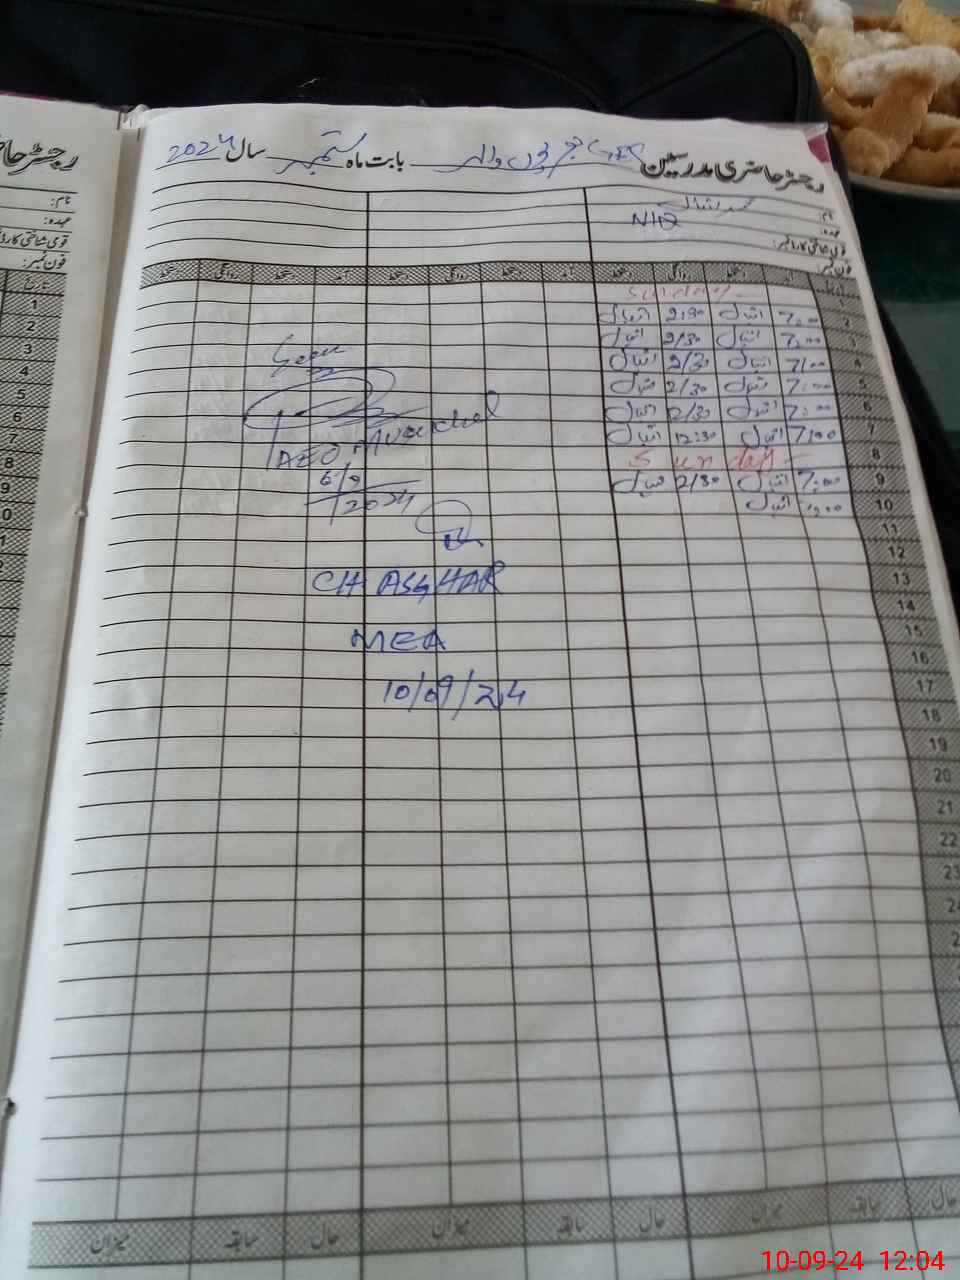 رجسٹر حاضری مدرسین بابت ماہ ستمبر سال 2024
نام:
عہدہ:
قومی شناختی کارڈ نمبر:
فون نمبر:
N/Q
Sunday
7:00 اقبال 2:30 اقبال
3 7:00 اقبال 2/30 اقبال
4 7/00 اقبال 2/30 اقبال
5 7:00 اقبال 2/30 اقبال
6 7:00 اقبال 2/30 اقبال
7 7/00 اقبال 12:30 اقبال
8 Sunday
9 7:00 اقبال 2/30 اقبال
10 اقبال
Seen
AEO
6/9/2024
CH ASGHAR
MEA
10/09/24
11
12
13
14
15
16
17
18
19
20
21
22
23
حال سابقہ میزان حال سابقہ میزان حال سابقہ میزان
رجسٹر حا
نام:
عہدہ:
قومی شناختی کارڈ
فون نمبر:
تاریخ
1
2
3
4
5
6
7
8
9
10-09-24 12:04